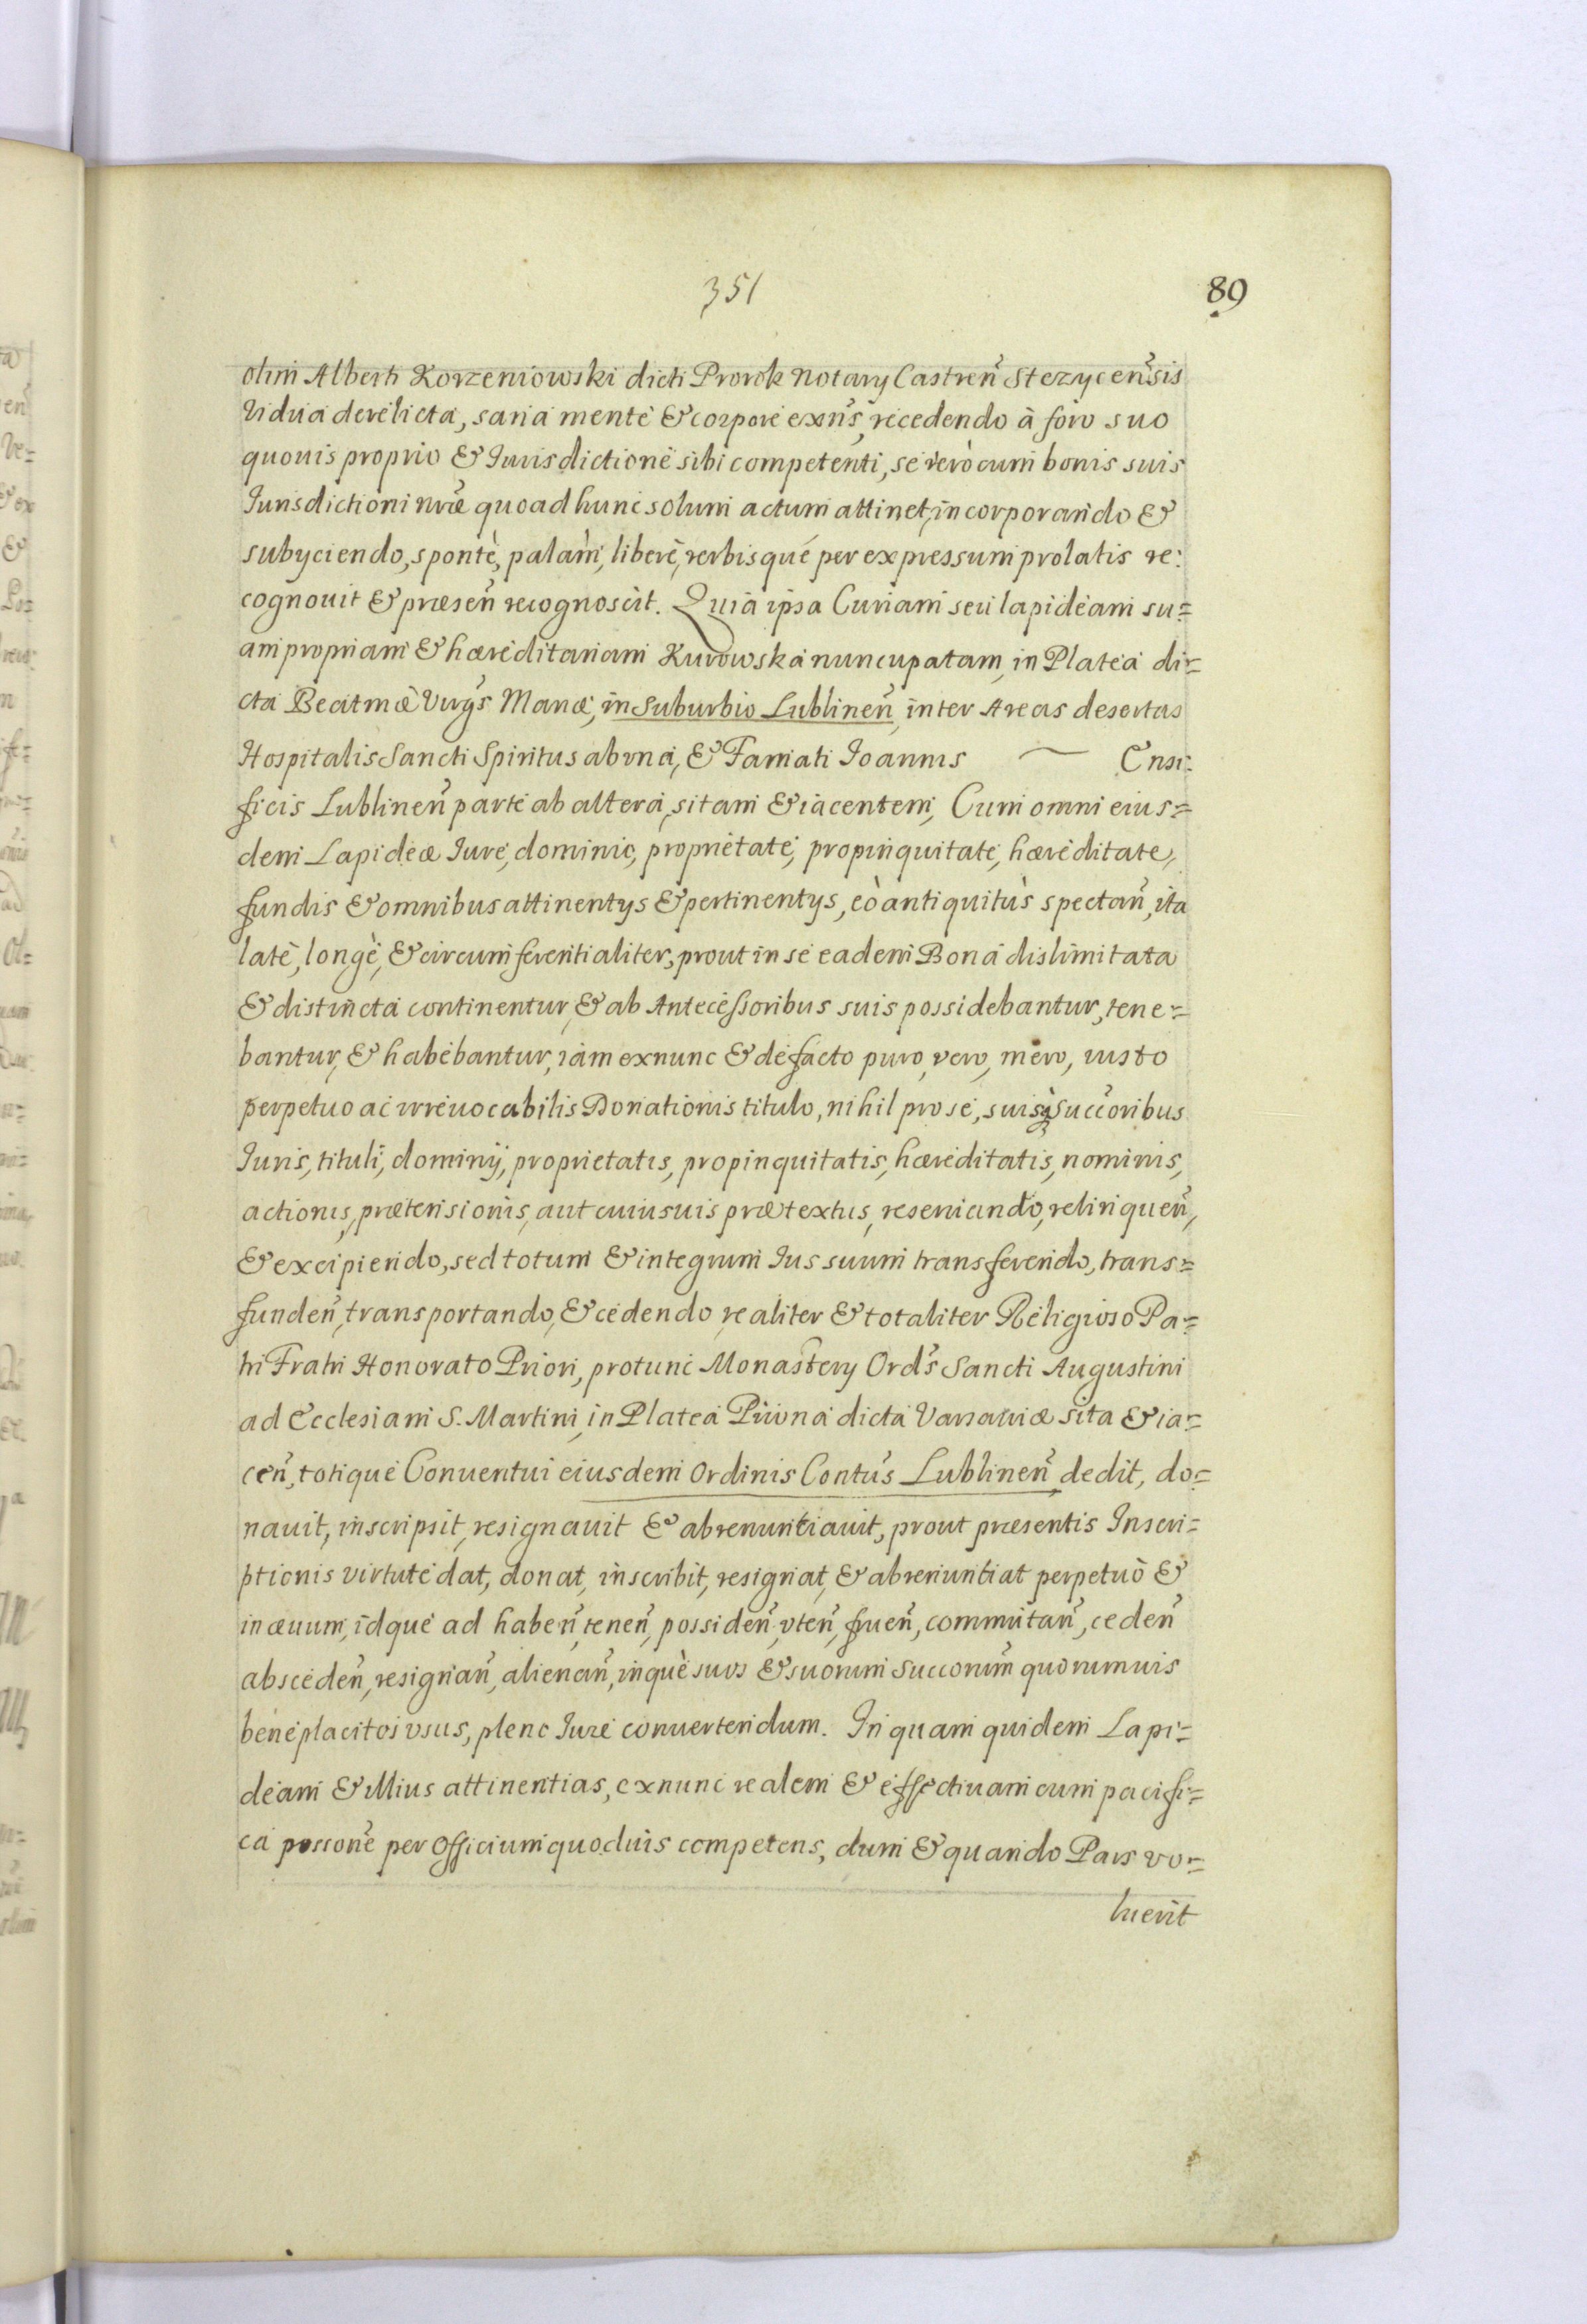 351
89
olim Alberti Korzeniowski dicti Prorok Notary Castren̄ Stezycen̄sis
Vidua derelicta, sana mente & corpore exn̄s, recedendo à foro suo
quouis proprio & Iurisdictione sibi competenti, se verò cum bonis suis
Iurisdictioni nr̄æ quoad hunc solum actum attinet, incorporando &
subyciendo, spontè, palàm, liberè, verbisque per expressum prolatis re:
cognouit & præsen̄ recognoscit. Quia ipsa Curiam seu lapideam su=
am propriam & hæreditariam Kurowska nuncupatam, in Platea di=
cta Beatmæ Virgs Mariæ, in Suburbio Lublinen̄, inter Areas desertas
Hospitalis Sancti Spiritus ab vna, & Famati Ioannis — Ensi:
ficis Lublinen̄ parte ab altera, sitam & iacentem, Cum omni eius=
dem Lapideæ Iure, dominio, proprietate, propinquitate, hæreditate,
fundis & omnibus attinentys & pertinentys, eò antiquitùs spectan̄, ita
latè, longè, & circumferentialiter, prout in se eadem Bona dislimitata
& distincta continentur, & ab Antecessoribus suis possidebantur, tene=
bantur, & habebantur, iam exnunc & de facto puro, vero, mero, iusto
perpetuo ac irreuocabilis Donationis titulo, nihil pro se, suisq̀ Succ̄oribus
Iuris, tituli, dominij, proprietatis, propinquitatis, hæreditatis, nominis,
actionis, prætensionis, aut cuiusuis prætextus, reseruando, relinquen̄,
& excipiendo, sed totum & integrum Ius suum transferendo, trans=
funden̄, transportando, & cedendo, realiter & totaliter Religioso Pa=
tri Fratri Honorato Priori, protunc Monastery Ord̄s Sancti Augustini
ad Ecclesiam S. Martini, in Platea Piwna dicta Varsaviæ sita & ia=
cen̄, totique Conuentui eiusdem Ordinis Contūs Lublinen̄ dedit, do=
nauit, inscripsit, resignauit & abrenuntiauit, prout præsentis Inscri=
ptionis virtute dat, donat, inscribit, resignat, & abrenuntiat perpetuò &
in æuum, idque ad haben̄, tenen̄, possiden̄, vten̄, fruen̄, commutan̄, ceden̄
absceden̄, resignan̄, alienan̄, inquè suos & suorum Succorum̄ quorumuis
beneplacitos vsus, pleno Iure conuertendum. In quam quidem Lapi=
deam & illius attinentias, exnunc realem & effectiuam cum pacifi=
ca possone per Officium quoduis competens, dum & quando Pars vo=
luerit